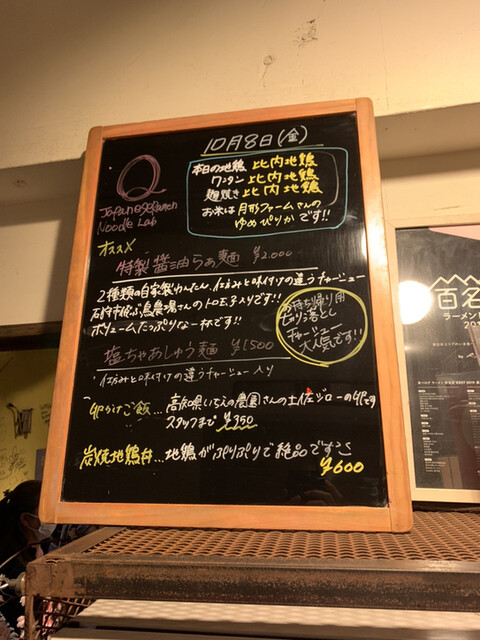 10月8日(金)
本日の地鶏 比内地鶏
ワンタン 比内地鶏
麹焼き 比内地鶏
お米は月形ファームさんの
ゆめぴりかです!!
Q
Japanese Ramen
Noodle Lab
オススメ
特製醤油らぁ麺 ¥2.000
2種類の自家製わんたん、仕込みと味付けの違うチャーシュー
トロ玉子入りです!!
ボリュームたっぷりな一杯です!!
お持ち帰り用
切り落とし
チャーシュー
大人気です!!
塩ちゃあしゅう麺 ¥1500
仕込みと味付けの違うチャーシュー入り
卵かけご飯…高知県いちえん農園さんの土佐ジローの卵です
¥350
炭焼地鶏丼…地鶏がぷりぷりで絶品です
¥600
百名
ラーメン